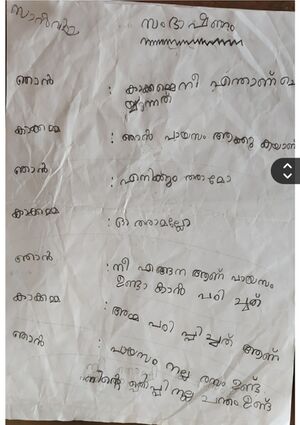 സാൻവിയ
സംഭാഷണം
ഞാൻ : കാക്കമ്മെ നീ എന്താണ് ചെ
യ്യുന്നത്
കാക്കമ്മ : ഞാൻ പായസം ആക്കു കയാണ്
ഞാൻ : എനിക്കും തരാമോ
കാക്കമ്മ : ഓ തരാമല്ലോ
ഞാൻ : നീ എങ്ങനെ ആണ് പായസം
ഉണ്ടാ കാൻ പഠി ച്ചത്
കാക്കമ്മ : അമ്മ പഠി പ്പി ച്ചത് ആണ്
ഞാൻ : പായസം നല്ല രസം ഉണ്ട്
നല്ല ചന്തം ഉണ്ട്